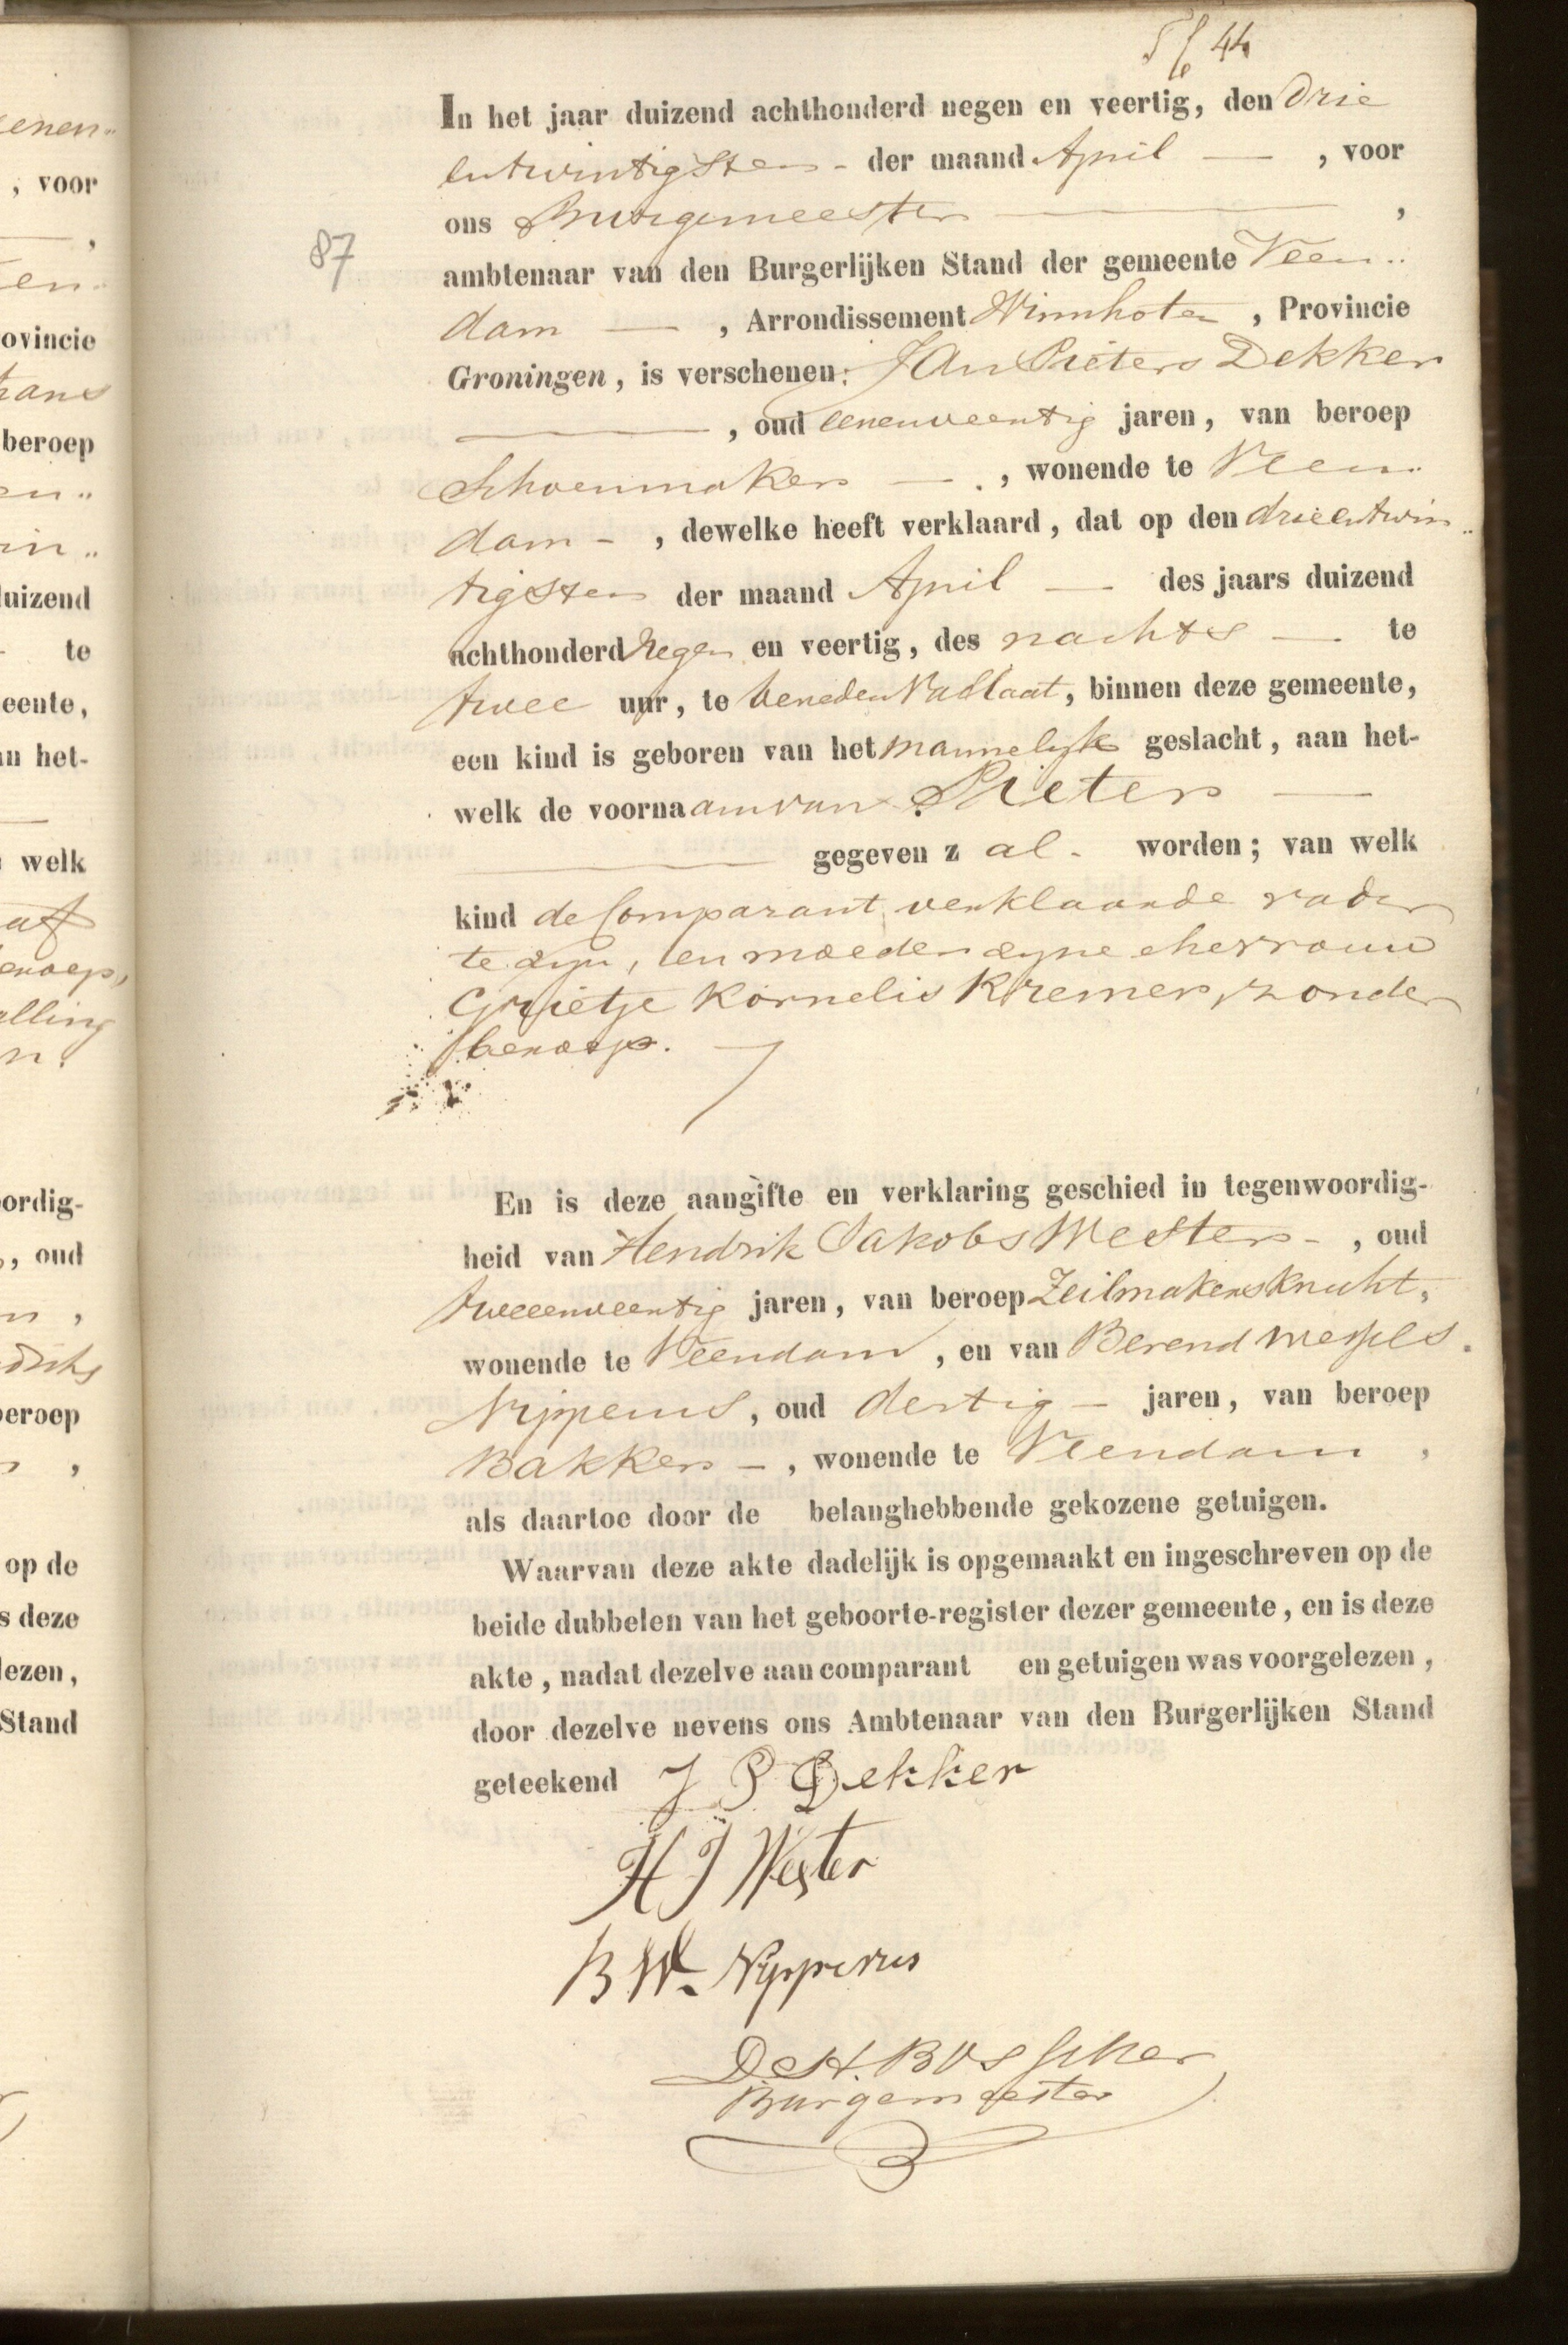 44
In het jaar duizend achthonderd negen en veertig, den drie
entwintigsten - der maand April — , voor
ons Burgemeester — ,
87
ambtenaar van den Burgerlijken Stand der gemeente Veen..
dam — , Arrondissement Winschoten , Provincie
Groningen, is verschenen: Jan Pieters Dekker
— , oud eenenveertig jaren, van beroep
Schoenmaker — . , wonende te Veen..
dam - , dewelke heeft verklaard, dat op den drieentwin..
tigsten der maand April — des jaars duizend
achthonderd negen en veertig, des nachts — te
twee uur, te beneden Vallaat, binnen deze gemeente,
een kind is geboren van het mannelijk geslacht, aan het-
welk de voornaam van Pieter —
— gegeven z al - worden; van welk
kind de Comparant verklaarde vader
te zijn, en moeder zijne ehevrouw
Grietje Kornelis Kremer, zonder
beroep. —
En is deze aangifte en verklaring geschied in tegenwoordig-
heid van Hendrik Jakobs Wester - , oud
tweeenveertig jaren, van beroep Zeilmakersknecht,
wonende te Veendam , en van Berend Wessels
Nipperus, oud dertig - jaren, van beroep
Bakker - , wonende te Veendam ,
als daartoe door de belanghebbende gekozene getuigen.
Waarvan deze akte dadelijk is opgemaakt en ingeschreven op de
beide dubbelen van het geboorte-register dezer gemeente, en is deze
akte, nadat dezelve aan comparant en getuigen was voorgelezen,
door dezelve nevens ons Ambtenaar van den Burgerlijken Stand
geteekend J P Dekker
H J Wester
B W. Nipperus
De H. Bosscher
Burgemeester